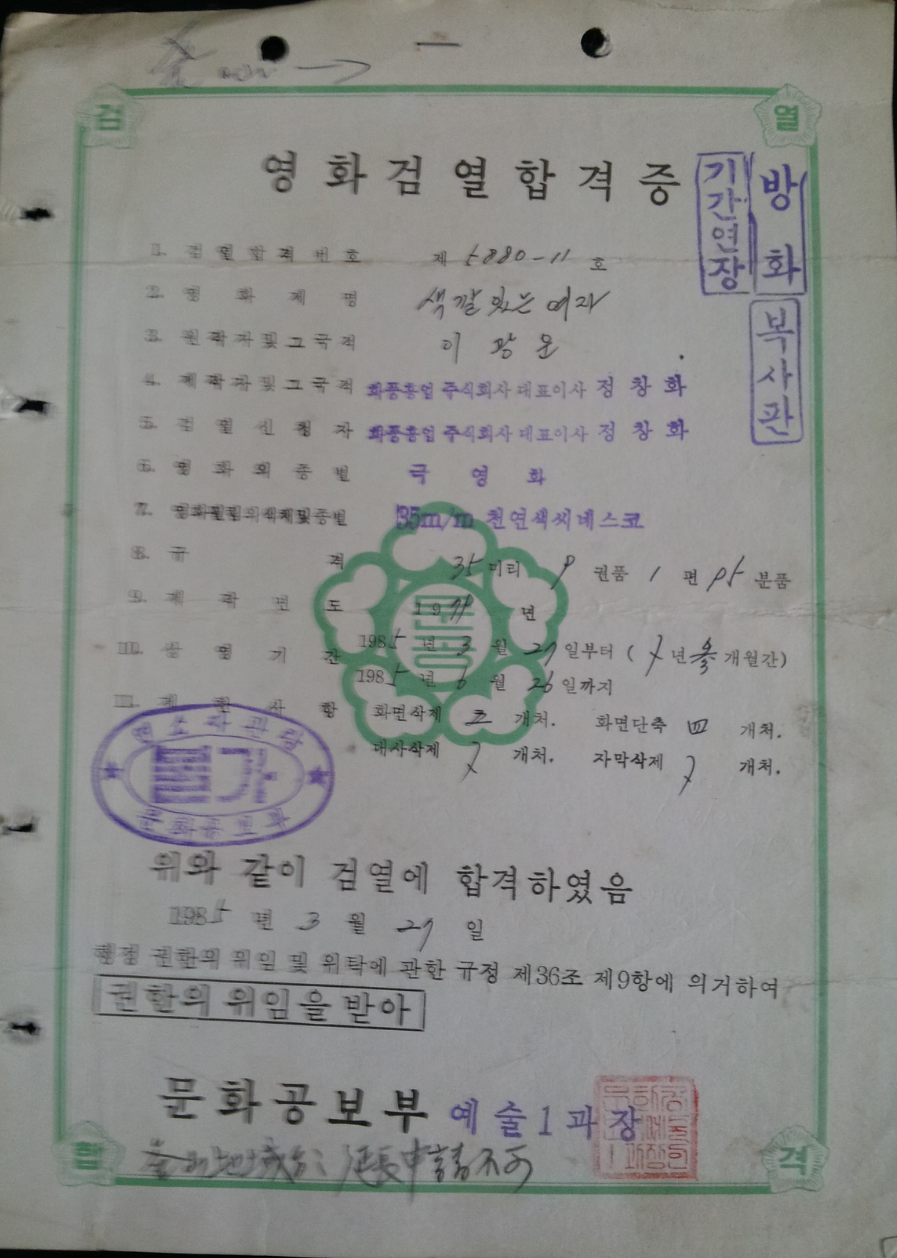 검 열
영화검열합격증
기간연장
방화
복사판
1. 검열합격번호 제 5880-11 호
2. 영화제명 색깔있는 여자
3. 원작자및그국적 이광운
4. 제작자및그국적 화풍흥업 주식회사 대표이사 정창화
5. 검열신청자 화풍흥업 주식회사 대표이사 정창화
6. 영화의종별 극영화
7. 영화필림의색채및종별 35m/m 천연색씨네스코
8. 규격 35미리 9 권품 1 편 95 분품
9. 제작년도 19 년
10. 상영기간 1985 년 3 월 27 일부터 ( 년 개월간)
1985 년 6 월 26 일까지
11. 제한사항 화면삭제 개처. 화면단축 四 개처.
대사삭제 개처. 자막삭제 개처.
연소자관람
불가
문화공보부
위와 같이 검열에 합격하였음
1985 년 3 월 27 일
행정 권한의 위임 및 위탁에 관한 규정 제36조 제9항에 의거하여
권한의 위임을 받아
문화공보부 예술1과장
延長申請不可
합 격